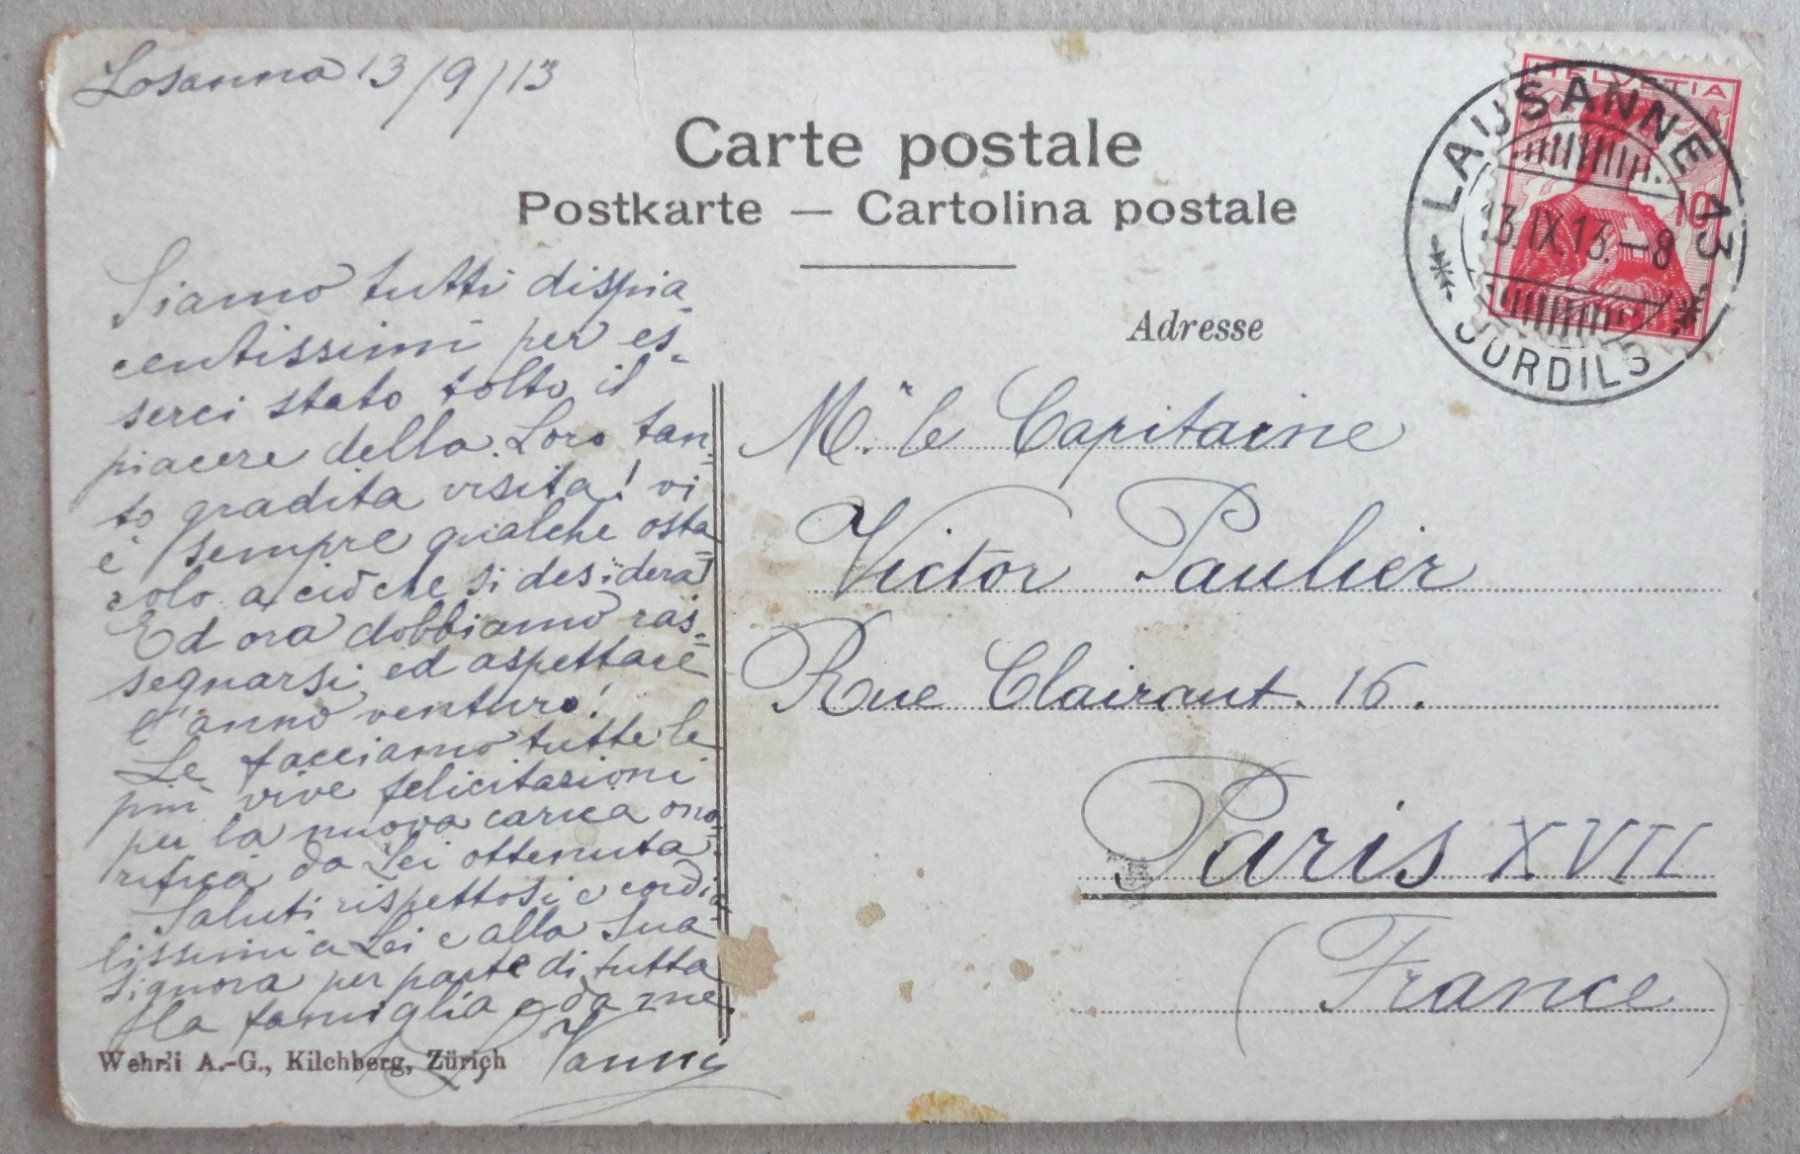 Losanna 13/9/13
Carte postale
Postkarte — Cartolina postale
Adresse
HELVETIA
10
LAUSANNE 13
13 IX 13. – 8
* JORDILS *
Siamo tutti dispia-
centissimi per es-
serci stato tolto il
piacere della Loro tan-
to gradita visita! vi
è sempre qualche osta-
colo a ciò che si desidera!
Ed ora dobbiamo ras-
segnarsi ed aspettare
l'anno venturo!
Le facciamo tutte le
più vive felicitazioni
per la nuova carica ono-
rifica da Lei ottenuta.
Saluti rispettosi e cordia-
lissimi a Lei e alla Sua
Signora per parte di tutta
la famiglia e da me
Vanni
Wehrli A.-G., Kilchberg, Zürich
Mr. le Capitaine
Victor Paulier
Rue Clairaut. 16.
Paris XVII
(France)